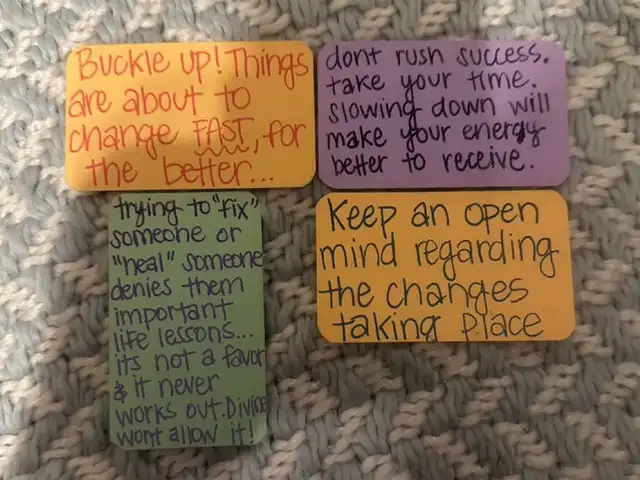 Buckle up! Things
are about to
change FAST, for
the better...
dont rush success.
take your time.
slowing down will
make your energy
better to receive.
trying to "fix"
someone or
"heal" someone
denies them
important
life lessons...
its not a favor
& it never
works out. Divine
wont allow it!
Keep an open
mind regarding
the changes
taking place